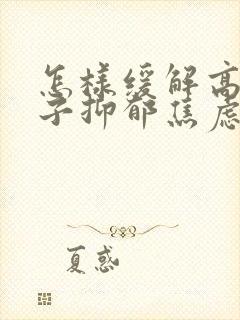 怎样缓解高
子抑郁焦虑
夏惑